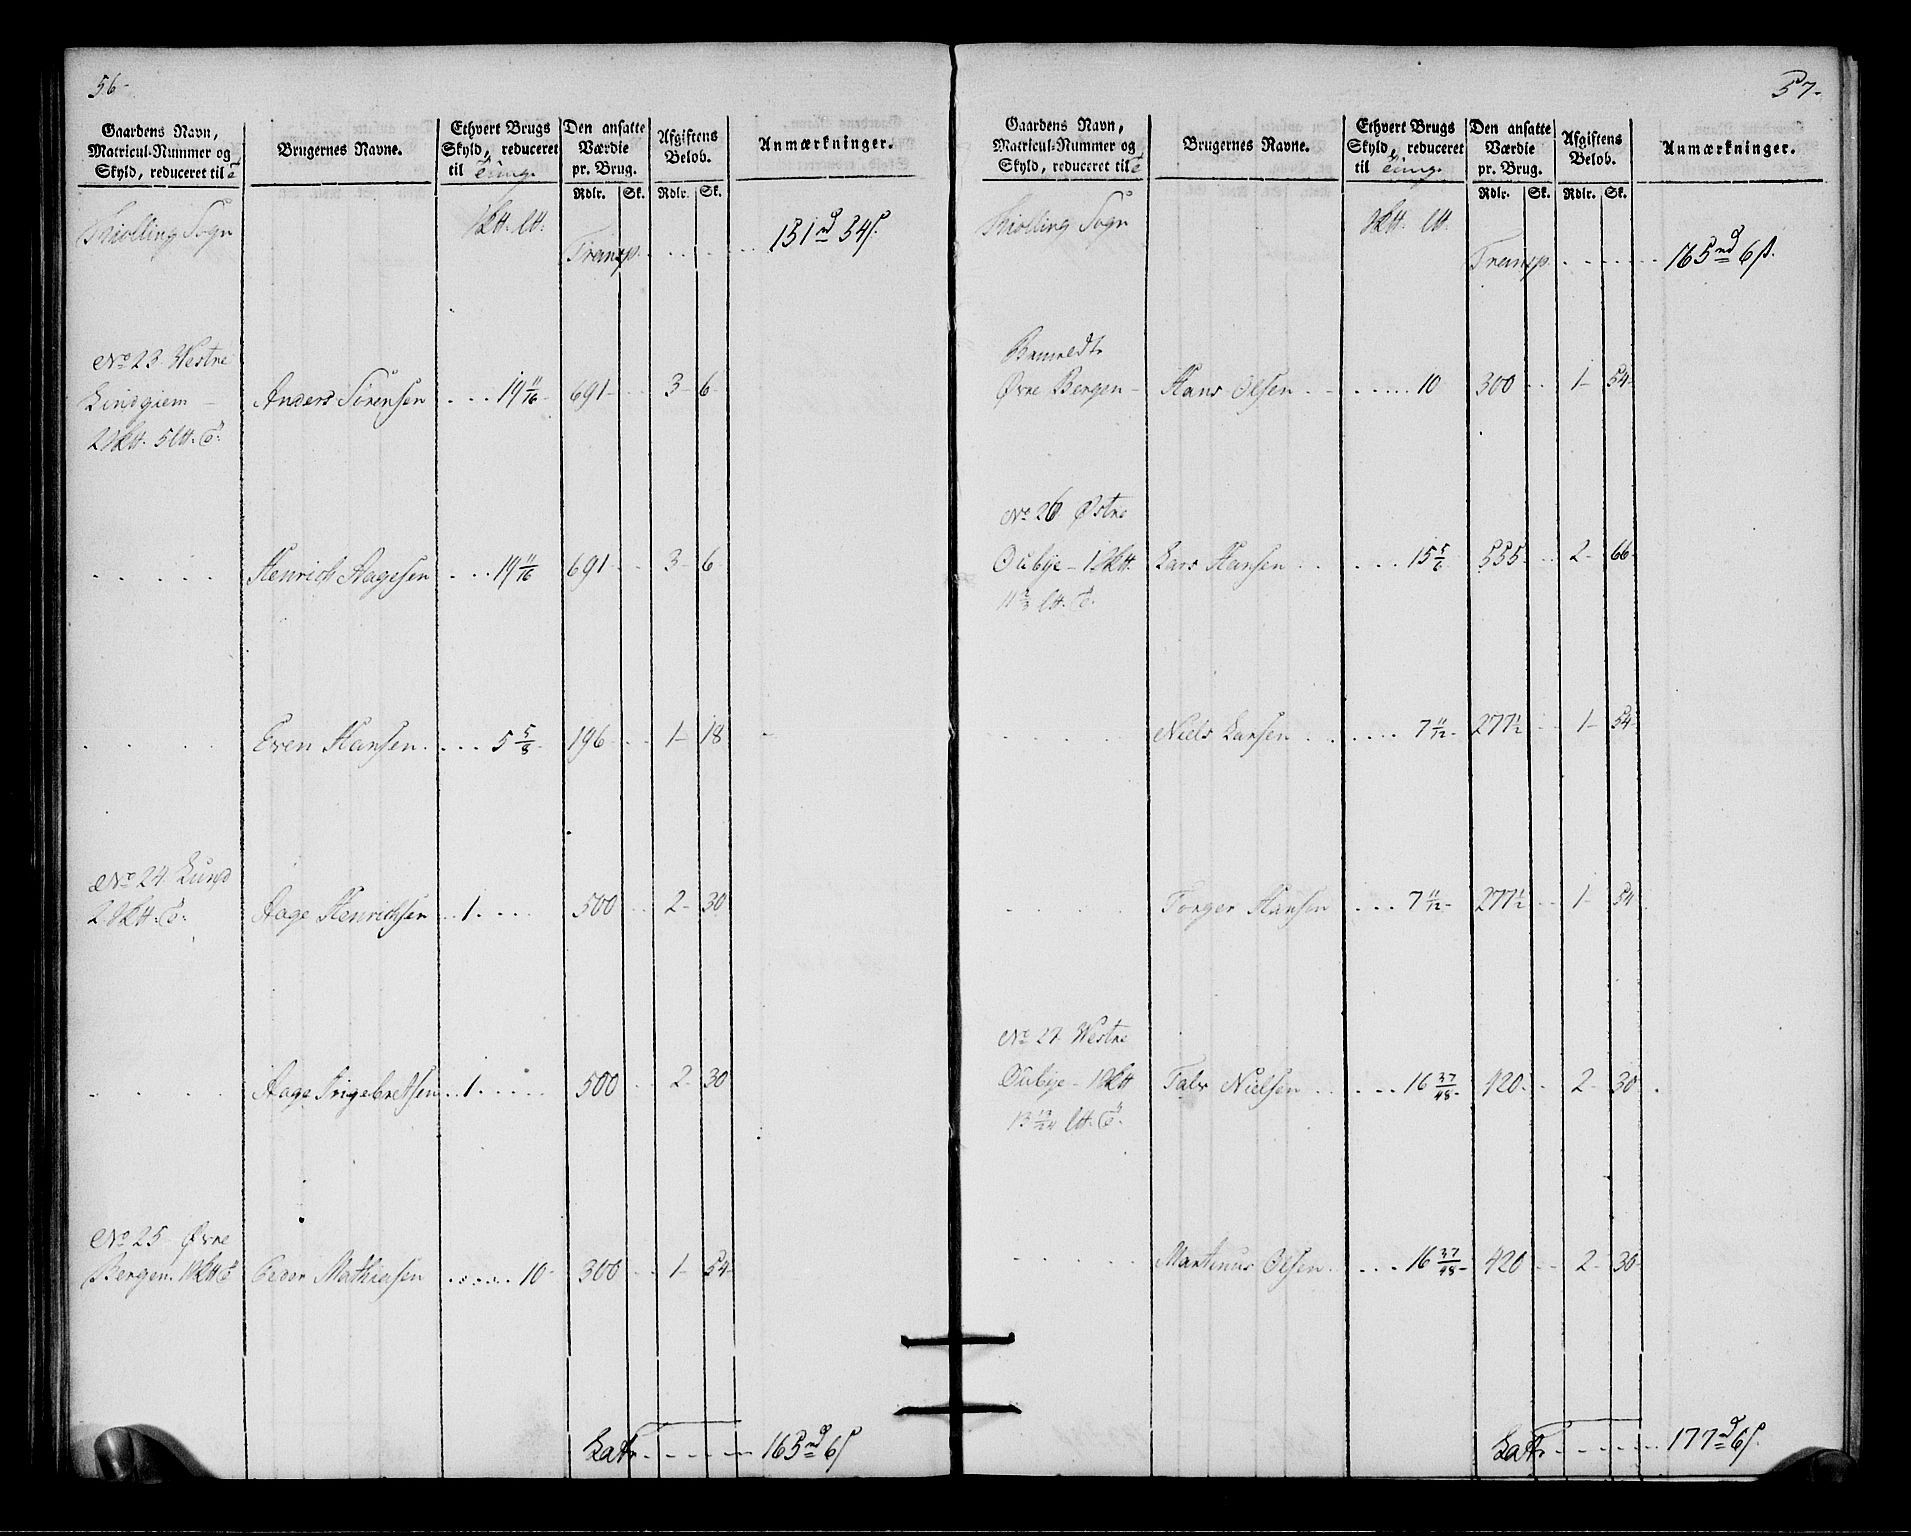 56-
Gaardens Navn, Matricul-Nummer og Skyld, reduceret til
Brugernes Navne.
Ethvert Brugs Skyld, reduceret til
Den ansatte Værdie pr. Brug.
Rdlr. Sk.
Afgiftens Beløb.
Rdlr. Sk.
Anmærkninger.
Sogn
Transp. 151 rd 54 s.
No 23. Westre
Lindgiem - Anders Sørensen 19 11/16 691 3 6
Henrich Aagesen 19 11/16 691 3 6
Even Hansen 5 5/8 196 1 18
No 24. Lund
Aage Henrichsen 1 500 2 30
Aage Ingebretsen 1 500 2 30
No 25 Øvre
Bergen. Peder Mathiesen 10 300 1 54
Latr. 165 rd 6 s
57-
Gaardens Navn, Matricul-Nummer og Skyld, reduceret til
Brugernes Navne.
Ethvert Brugs Skyld, reduceret til
Den ansatte Værdie pr. Brug.
Rdlr. Sk.
Afgiftens Beløb.
Rdlr. Sk.
Anmærkninger.
Sogn
Transp. 165 rd 6 s.
Øvre Bergen - Hans Olsen 10 300 1 54
No 26 Østre
Lars Hansen 15 5/6 555 2 66
Niels Larsen 7 11/12 277 1/2 1 54
Torger Hansen 7 11/12 277 1/2 1 54
No 27 Westre
Nielsen 16 37/48 420 2 30
13 13/24
Martinus Olsen 16 37/48 420 2 30
Latr. 177 rd 6 s.